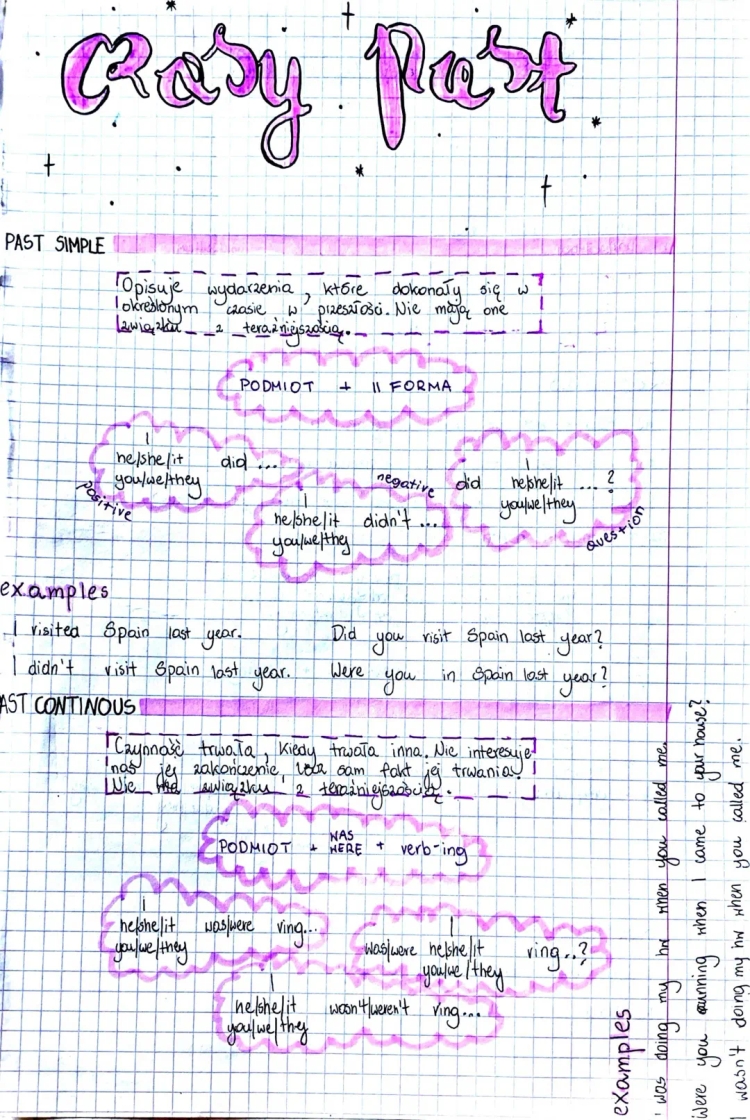 Crazy Past
PAST SIMPLE
Opisuje wydarzenia, które dokonały się w
określonym czasie w przeszłości. Nie mają one
związku z teraźniejszością.
PODMIOT + II FORMA
I
he/she/it did ...
you/we/they
positive
negative
I
he/she/it didn't ...
you/we/they
I
did he/she/it ... ?
you/we/they
question
examples
I visited Spain last year.
Did you visit Spain last year?
I didn't visit Spain last year.
Were you in Spain last year?
AST CONTINOUS
Czynność trwała, kiedy trwała inna. Nie interesuje
nas jej zakończenie, sam fakt jej trwania.
Nie ma związku z teraźniejszością.
WAS
PODMIOT + WERE + verb-ing
I
he/she/it was/were ving...
you/we/they
I
was/were he/she/it ving..?
you/we/they
I
he/she/it wasn't/weren't ving...
you/we/they
examples
was doing my hw when you called me.
Were you running when I came to your house?
I wasn't doing my hw when you called me.